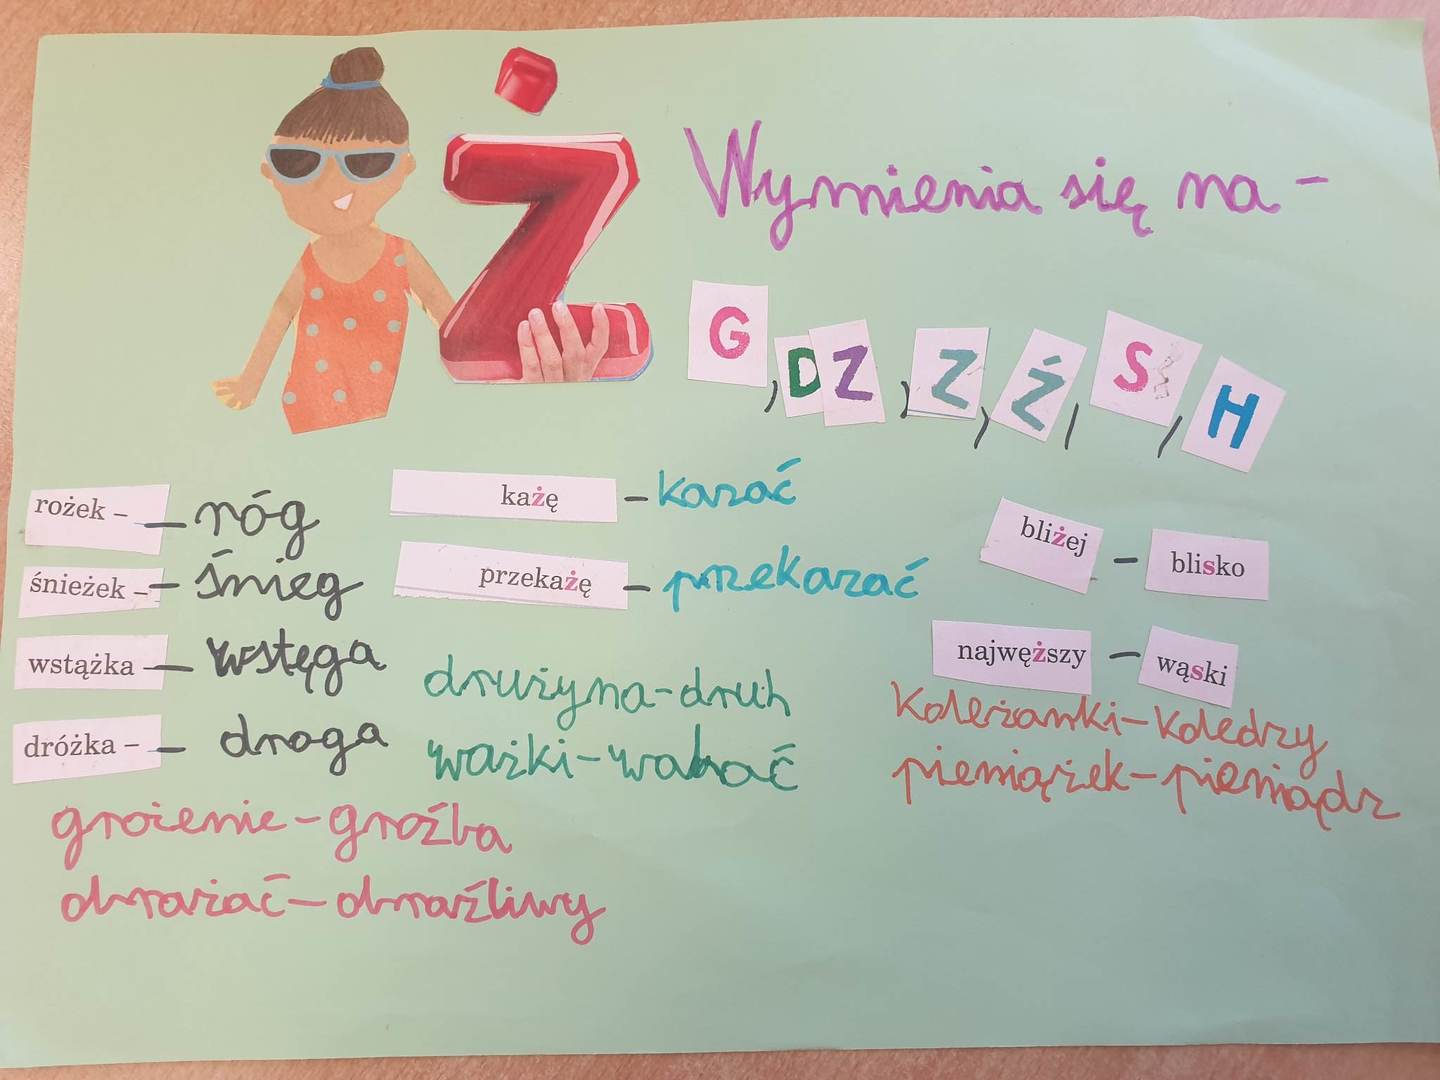 Ż
Wymienia się na -
G, DZ, Z, Ź, S, H
rożek – – róg
śnieżek – – śnieg
wstążka – wstęga
dróżka – – droga
każę – kazać
przekażę – przekazać
drużyna - druh
ważki - wahać
bliżej – blisko
najwęższy – wąski
koleżanki - koledzy
pieniążek - pieniądz
grożenie - groźba
obrażać - obraźliwy